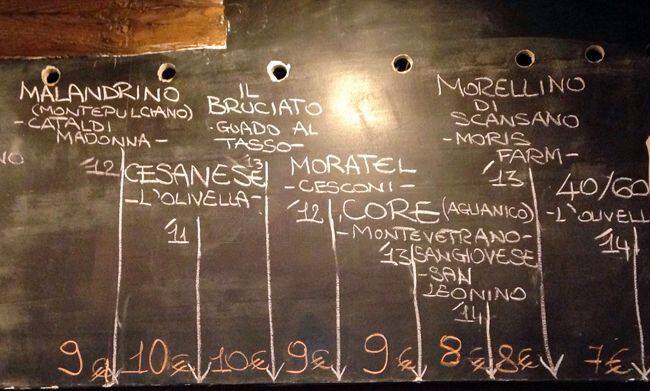 NO
MALANDRINO
(MONTEPULCIANO)
-CATALDI
MADONNA-
'12
9€
CESANESE
-L'OLIVELLA-
'11
10€
IL
BRUCIATO
-GUADO AL
TASSO-
'13
10€
MORATEL
-CESCONI-
'12
9€
CORE (AGLIANICO)
-MONTEVETRANO-
'13
9€
SANGIOVESE
-SAN
LEONINO
'14
8€
MORELLINO
DI
SCANSANO
-MORIS
FARM-
'13
8€
40/60
-L'OLIVELL
'14
7€